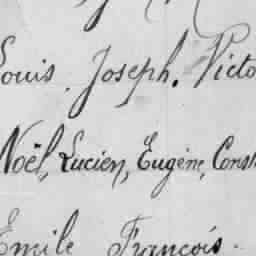 Louis. Joseph. Victo
Noël, Lucien, Eugène, Const
Emile François.